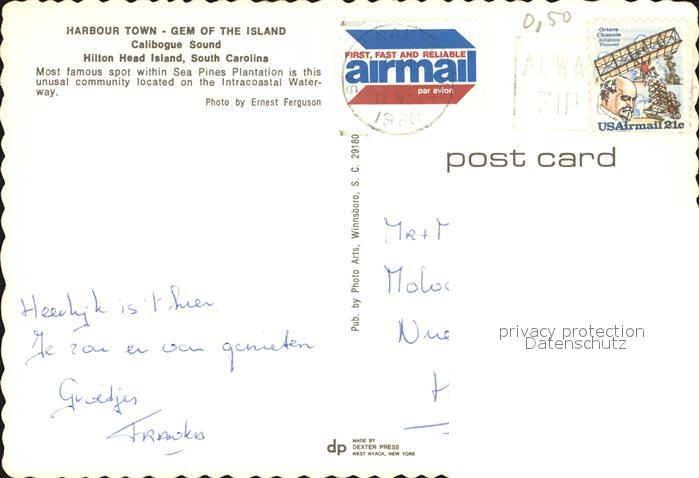 HARBOUR TOWN - GEM OF THE ISLAND
Calibogue Sound
Hilton Head Island, South Carolina
Most famous spot within Sea Pines Plantation is this
unusual community located on the Intracoastal Water-
way.
Photo by Ernest Ferguson
FIRST, FAST AND RELIABLE
airmail
par avion
1980
ZIP
0,50
Octave
Chanute
Aviation
Pioneer
USAirmail 21c
post card
Pub. by Photo Arts, Winnsboro, S. C. 29180
Heerlijk is 't hier
Je zou er van genieten
Groetjes
Mr + M
Moloc
privacy protection
Datenschutz
dp
MADE BY
DEXTER PRESS
WEST NYACK, NEW YORK